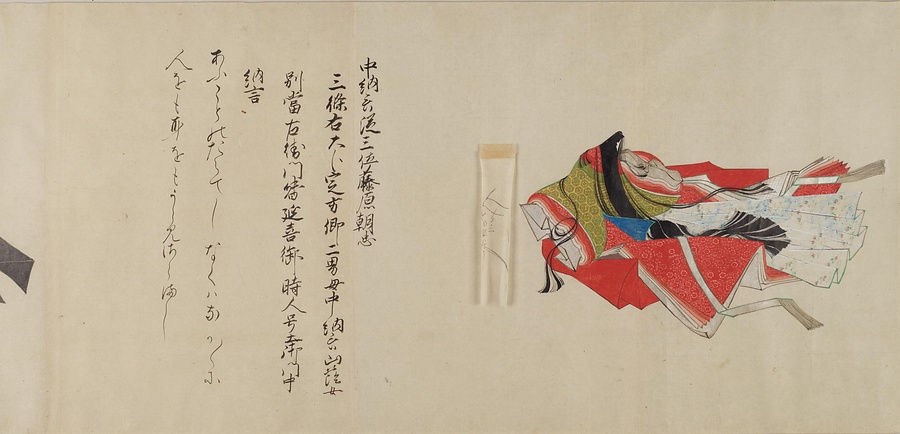 中納言従三位藤原朝忠
三條右大臣定方卿二男母中納言山蔭女
別當右衛門督延喜御時人号土御門中
納言
あふことのたえてしなくはなかなかに
人をも身をもうらみさらまし